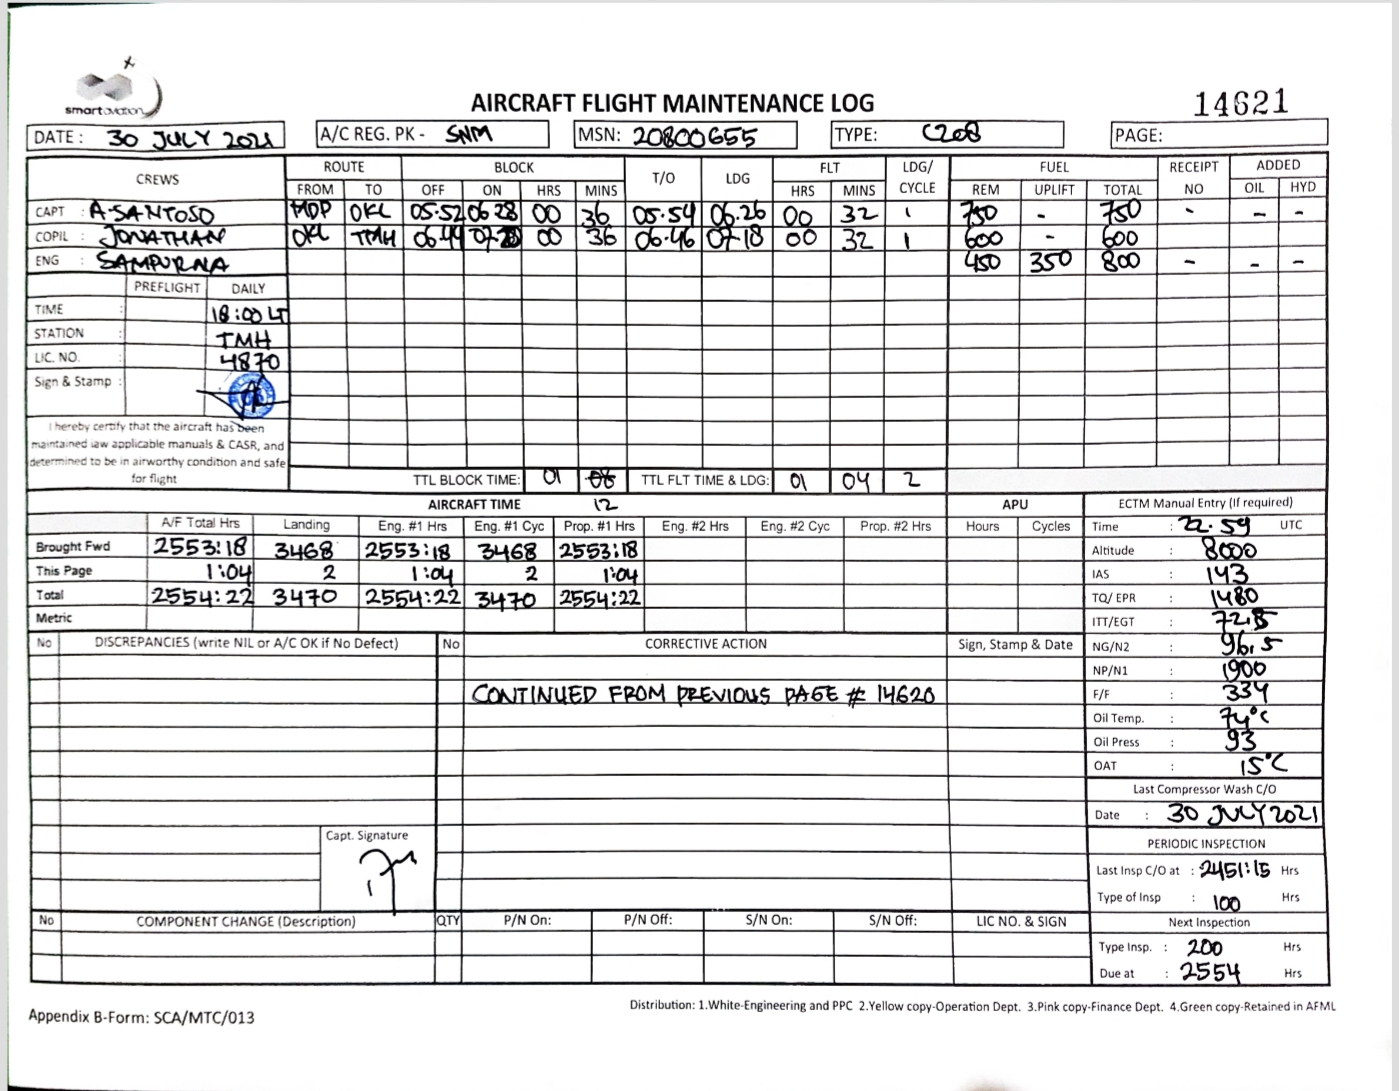 smart aviation
AIRCRAFT FLIGHT MAINTENANCE LOG
14621
DATE : 30 JULY 2021 A/C REG. PK - SNM MSN: 20800655 TYPE: C208 PAGE:
CREWS ROUTE BLOCK T/O LDG FLT LDG/ FUEL RECEIPT ADDED
FROM TO OFF ON HRS MINS HRS MINS CYCLE REM UPLIFT TOTAL NO OIL HYD
CAPT : A.SANTOSO MDP OKL 05:52 06 28 00 36 05.54 06.26 00 32 1 750 - 750 - - -
COPIL : JONATHAN OKL TMH 06.44 00 36 06.46 07.18 00 32 1 600 - 600
ENG : SAMPURNA 450 350 800 - - -
PREFLIGHT DAILY
TIME : 18:00 LT
STATION : TMH
LIC. NO. : 4870
Sign & Stamp :
I hereby certify that the aircraft has been
maintained iaw applicable manuals & CASR, and
determined to be in airworthy condition and safe
for flight
TTL BLOCK TIME: 01 06 TTL FLT TIME & LDG: 01 04 2
AIRCRAFT TIME 12 APU ECTM Manual Entry (If required)
A/F Total Hrs Landing Eng. #1 Hrs Eng. #1 Cyc Prop. #1 Hrs Eng. #2 Hrs Eng. #2 Cyc Prop. #2 Hrs Hours Cycles Time : 22.59 UTC
Brought Fwd 2553:18 3468 2553:18 3468 2553:18 Altitude : 8000
This Page 1:04 2 1:04 2 1:04 IAS : 143
Total 2554:22 3470 2554:22 3470 2554:22 TQ/ EPR : 1480
Metric ITT/EGT :
No DISCREPANCIES (write NIL or A/C OK if No Defect) No CORRECTIVE ACTION Sign, Stamp & Date NG/N2 : 96.5
NP/N1 : 1900
CONTINUED FROM PREVIOUS PAGE # 14620 F/F : 334
Oil Temp. : 74°C
Oil Press : 93
OAT : 15°C
Last Compressor Wash C/O
Date : 30 JULY 2021
Capt. Signature PERIODIC INSPECTION
Last Insp C/O at : 2451:15 Hrs
Type of Insp : 100 Hrs
No COMPONENT CHANGE (Description) QTY P/N On: P/N Off: S/N On: S/N Off: LIC NO. & SIGN Next Inspection
Type Insp. : 200 Hrs
Due at : 2554 Hrs
Distribution: 1.White-Engineering and PPC 2.Yellow copy-Operation Dept. 3.Pink copy-Finance Dept. 4.Green copy-Retained in AFML
Appendix B-Form: SCA/MTC/013